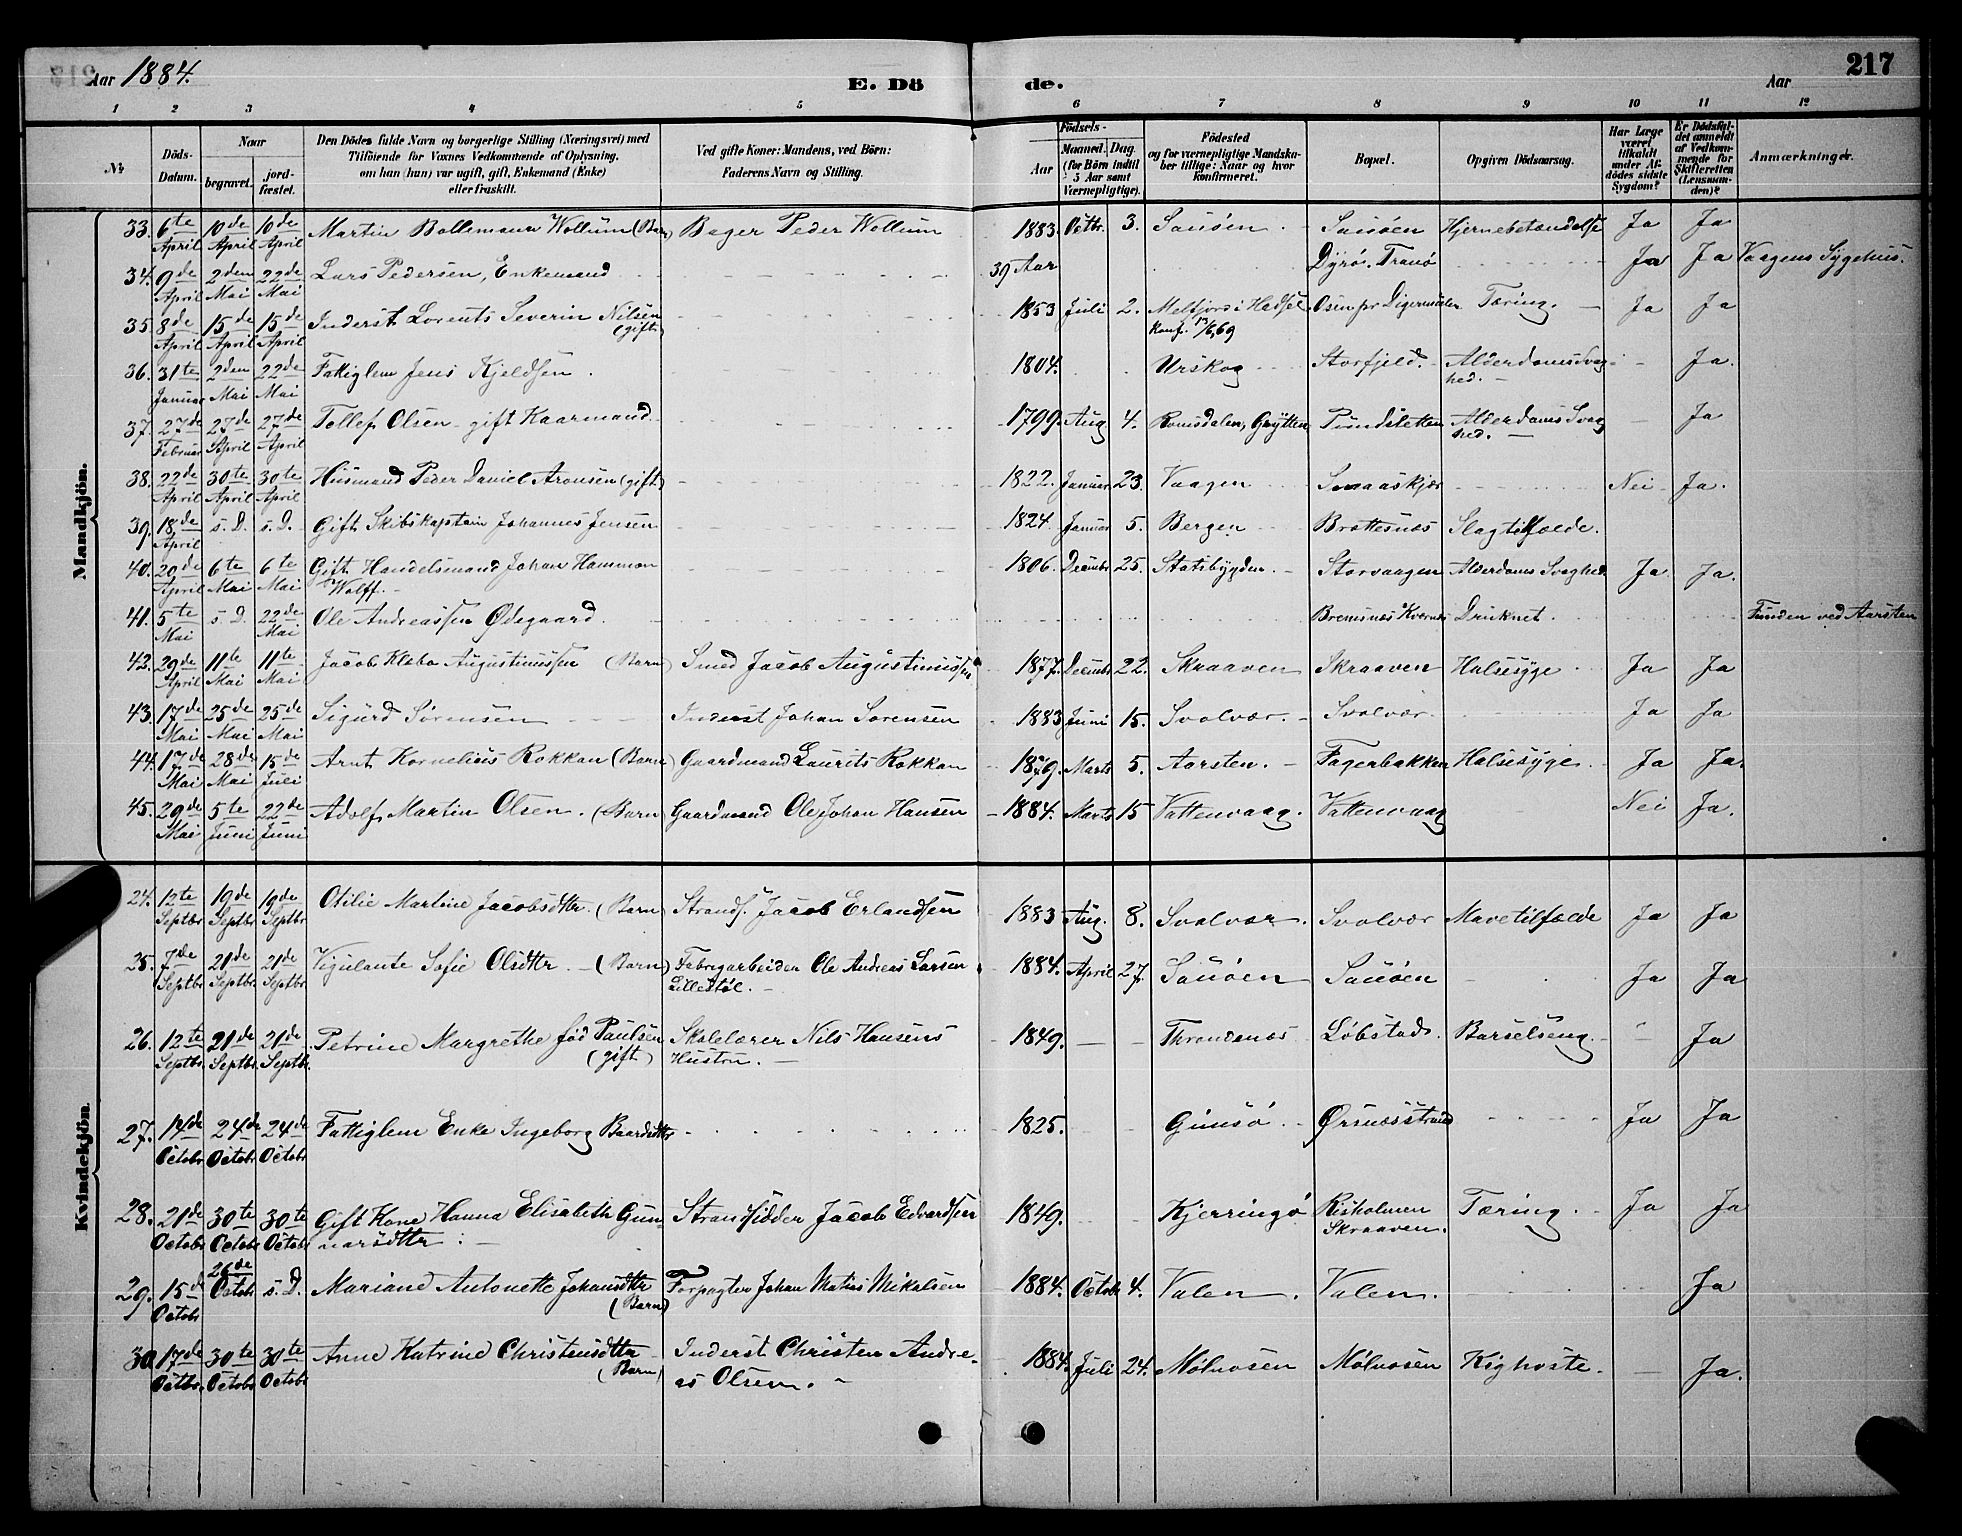 Aar 1884. E. Dö de. Aar 217
1 2 3 4 5 6 7 8 9 10 11 12
No. Döds-Datum. Naar begravet. jordfæstet. Den Dödes fulde Navn og borgerlige Stilling (Næringsvei) med Tilföiende for Voxnes Vedkommende af Oplysning, om han (hun) var ugift, gift, Enkemand (Enke) eller fraskilt. Ved gifte Koner: Mandens, ved Börn: Faderens Navn og Stilling. Födsels- Aar Maaned. Dag. (for Börn indtil 5 Aar samt Værnepligtige). Födested og for værnepligtige Mandskaber tillige: Naar og hvor konfirmeret. Bopæl. Opgiven Dödsaarsag. Har Læge været tilkaldt under Afdödes sidste Sygdom? Er Dödsfaldet anmeldt af Vedkommende for Skifteretten (Lensmanden)? Anmærkninger.
Mandkjön.
33. 6te April 10de April 10de April Martin Bollemann Wollum (Barn) Bager Peder Wollum 1883. Octbr. 3. Sauöen. Sauöen Hjernebetændelse Ja Ja
34. 9de April 2den Mai 22de Mai Lars Pedersen, Enkemand 39 Aar Dyrö. Tranö Ja Ja Vaagens Sygehus.
35. 8de April 15de April 15de April Inderst Lorents Severin Nilsen (gift) 1853 Juli 2. Melfjord i Hadsel Konf. 13/6 69 Osen pr Digermulen Tæring. Ja Ja
36. 31te Januar 2den Mai 22de Mai Fattiglem Jens Kjeldsen. 1804. Urskog Storfjeld. Alderdomssvaghed. Ja.
37. 27de Februar 27de April 27de April Tollef Olsen gift Kaarmand 1799. Aug 4. Romsdalen, Grytten Pundsletten Alderdoms Svaghed. Ja
38. 22de April 30te April 30te April Husmand Peder Daniel Aronsen (gift) 1822. Januar 23. Vaagen Smaaskjær Nei Ja.
39. 18de April s. D. s. D. Gift Skibskaptain Johannes Jensen 1824. Januar 5. Bergen Brettesnæs Slagtilfælde.
40. 20de April 6te Mai 6te Mai Gift Handelsmand Johan Hammon Wolff. 1806. Decmbr 25. Statsbygden. Storvaagen Alderdoms Svaghed. Ja. Ja.
41. 5te Mai s. D. 22de Mai Ole Andreassen Ødegaard. Bremsnæs Kvernæs Druknet. Funden ved Aarsten
42. 29de April 11te Mai 11te Mai Jacob Klæbo Augustinussen (Barn) Smed Jacob Augustinussen 1877. Decmbr 22. Skraaven Skraaven Halsesyge Ja Ja
43. 17de Mai 25de Mai 25de Mai Sigurd Sørensen Inderst Johan Sørensen 1883 Juni 15. Svolvær. Svolvær. Ja Ja
44. 17de Mai 28de Mai 15de Juli Arnt Kornelius Rokkan (Barn) Gaardmand Laurits Rokkan 1879. Marts 5. Aarsten. Fagerbakken Halsesyge. Ja Ja.
45. 29de Mai 5te Juni 22de Juni Adolf Martin Olsen. (Barn) Gaardmand Ole Johan Hansen 1884. Marts 15 Vattenvaag. Vattenvaag Nei Ja.
Kvindekjön.
24. 12te Septbr 19de Septbr 19de Septbr Otilie Martine Jacobsdttr. (Barn) Strands. Jacob Erlandsen 1883 Aug. 8. Svolvær. Svolvær Mavetilfælde Ja Ja
25. 7de Septbr 21de Septbr 21de Septbr. Vigulante Sofie Olsdttr. (Barn) Fabrigarbeider Ole Andreas Larsen Lillestøl. 1884. April 27. Sauöen Sauöen Ja Ja
26. 12te Septbr. 21de Septbr. 21de Septbr. Petrine Margrethe fød Paulsen (gift) Skolelærer Nils Hansens Hustru. 1849. Throndenæs Löbstad. Barselseng. Ja
27. 14de Octobr 24de Octobr 24de Octobr Fattiglem Enke Ingeborg Baardsdttr 1825. Gimsö. Ørsnæsstrand Ja Ja
28. 21de Octobr 30te Octobr 30te Octobr Gift Kone Hanna Elisabeth Gunnarsdttr. Strandsidder Jacob Edvardsen 1849. Kjerringö Risholmen Skraaven. Tæring. Ja Ja
29. 15de Octobr 26de Octobr s. D. Mariane Antonette Johansdttr (Barn) Forpagter Johan Matias Mikalsen 1884. Octobr 4. Valen. Valen. Ja
30 17de Octbr. 30te Octobr 30te Octobr Anne Katrine Christensdttr (Barn) Inderst Christen Andreas Olsen. 1884. Juli 24. Mølnosen Mølnosen Kighoste. Ja.